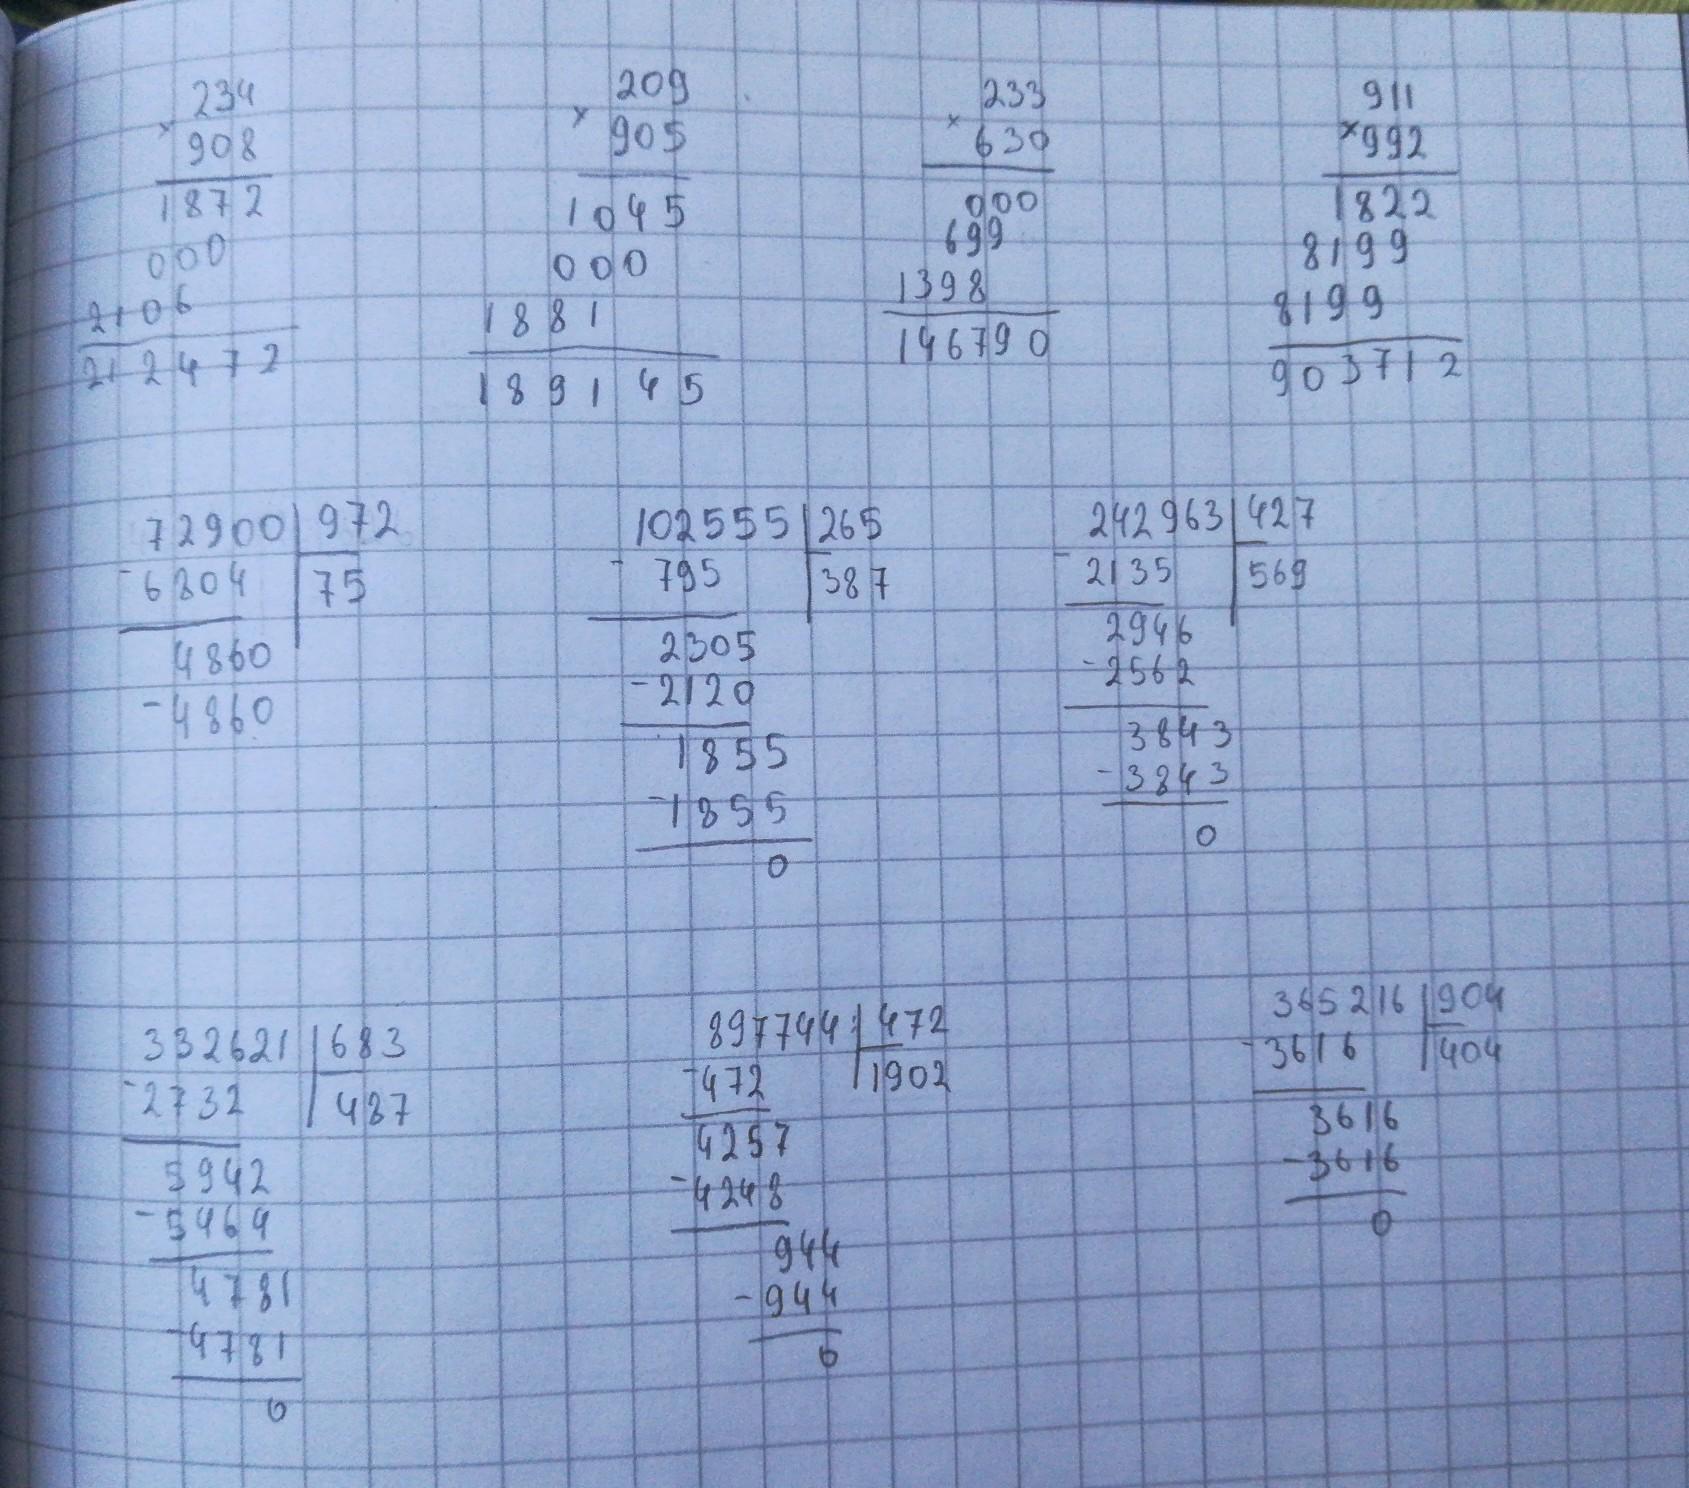 234
×
908
1872
000
2106
212472
209
×
905
1045
000
1881
189145
233
×
630
000
699
1398
146790
911
×992
1822
8199
8199
903712
72900 972
-6804 75
4860
-4860
102555 265
-795 387
2305
-2120
1855
-1855
0
242963 427
-2135 569
2946
-2562
3843
-3843
0
332621 683
-2732 487
5942
-5464
4781
-4781
0
897744 472
-472 1902
4257
-4248
944
-944
0
365216 904
-3616 404
3616
-3616
0